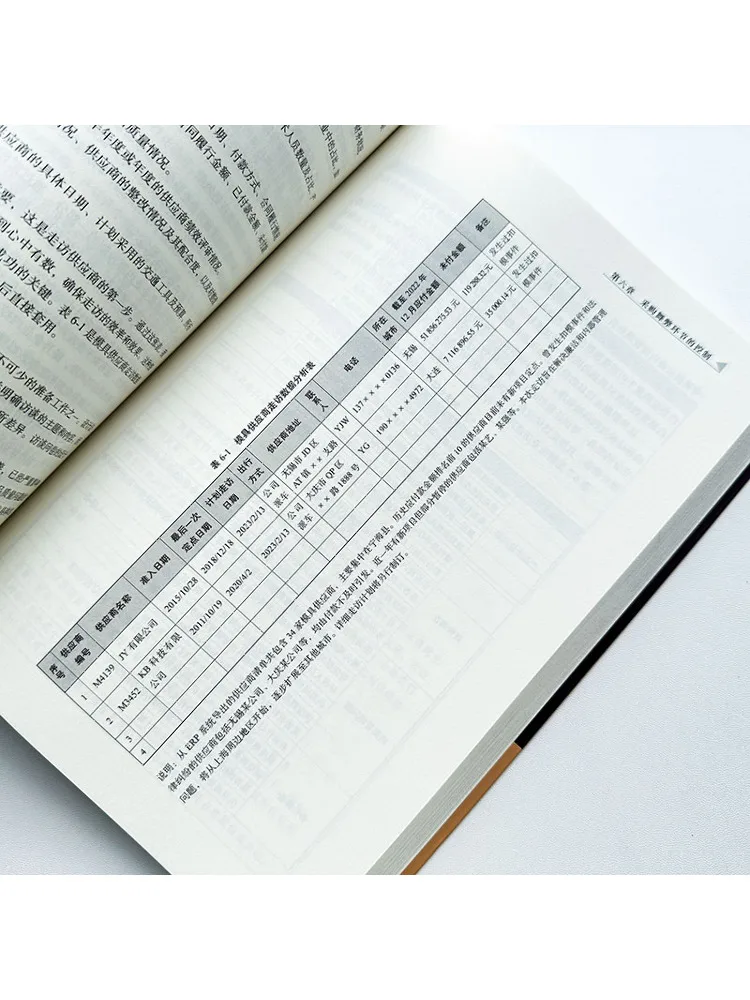 质量情况。
供应商的具体日期、计划采用的交通工具及预
要,这是走访供应商的第一步。通过
到心中有数,确保走访的效率和效果,
功的关键。表 6-1 是模具供应商走访数据
后直接套用。
不可少的准备工作之一,
明确访谈的主题和
所差异。访谈
第六章 采购舞弊环节的控制
表 6-1 模具供应商走访数据分析表
序号 供应商编号 供应商名称 准入日期 最后一次定点日期 计划走访日期 出行方式 供应商地址 联系人 电话 所在城市 截至 2022 年 12 月应付金额 未付金额 备注
1 M4139 JY 有限公司 2015/10/28 2018/12/18 2023/2/13 公司派车 无锡市 JD 区 AT 镇 ×× 支路 YJW 137××××0136 无锡 51 856 275.33 元 119 288.32 元 发生过扣模事件
2 M3452 KB 科技有限公司 2011/10/19 2020/4/2 2023/2/13 公司派车 大庆市 QP 区 ××路 1888 号 YG 190××××4972 大连 7 116 896.55 元 35 000.14 元 发生过扣模事件
3
4
说明:从 ERP 系统导出的供应商清单共包含 34 家模具供应商,主要集中在宁海县。历史应付款金额排名前 10 的供应商目前未有新项目定点。曾发生扣模事件和法
律纠纷的供应商包括无锡某公司、大庆某公司等,均由付款不及时引发。近一年有新项目但部分暂停的供应商包括某艺、某强等。本次走访旨在解决廉洁和内部管理
问题,将从上海周边地区开始,逐步扩展至其他城市。详细走访计划将另行制订。